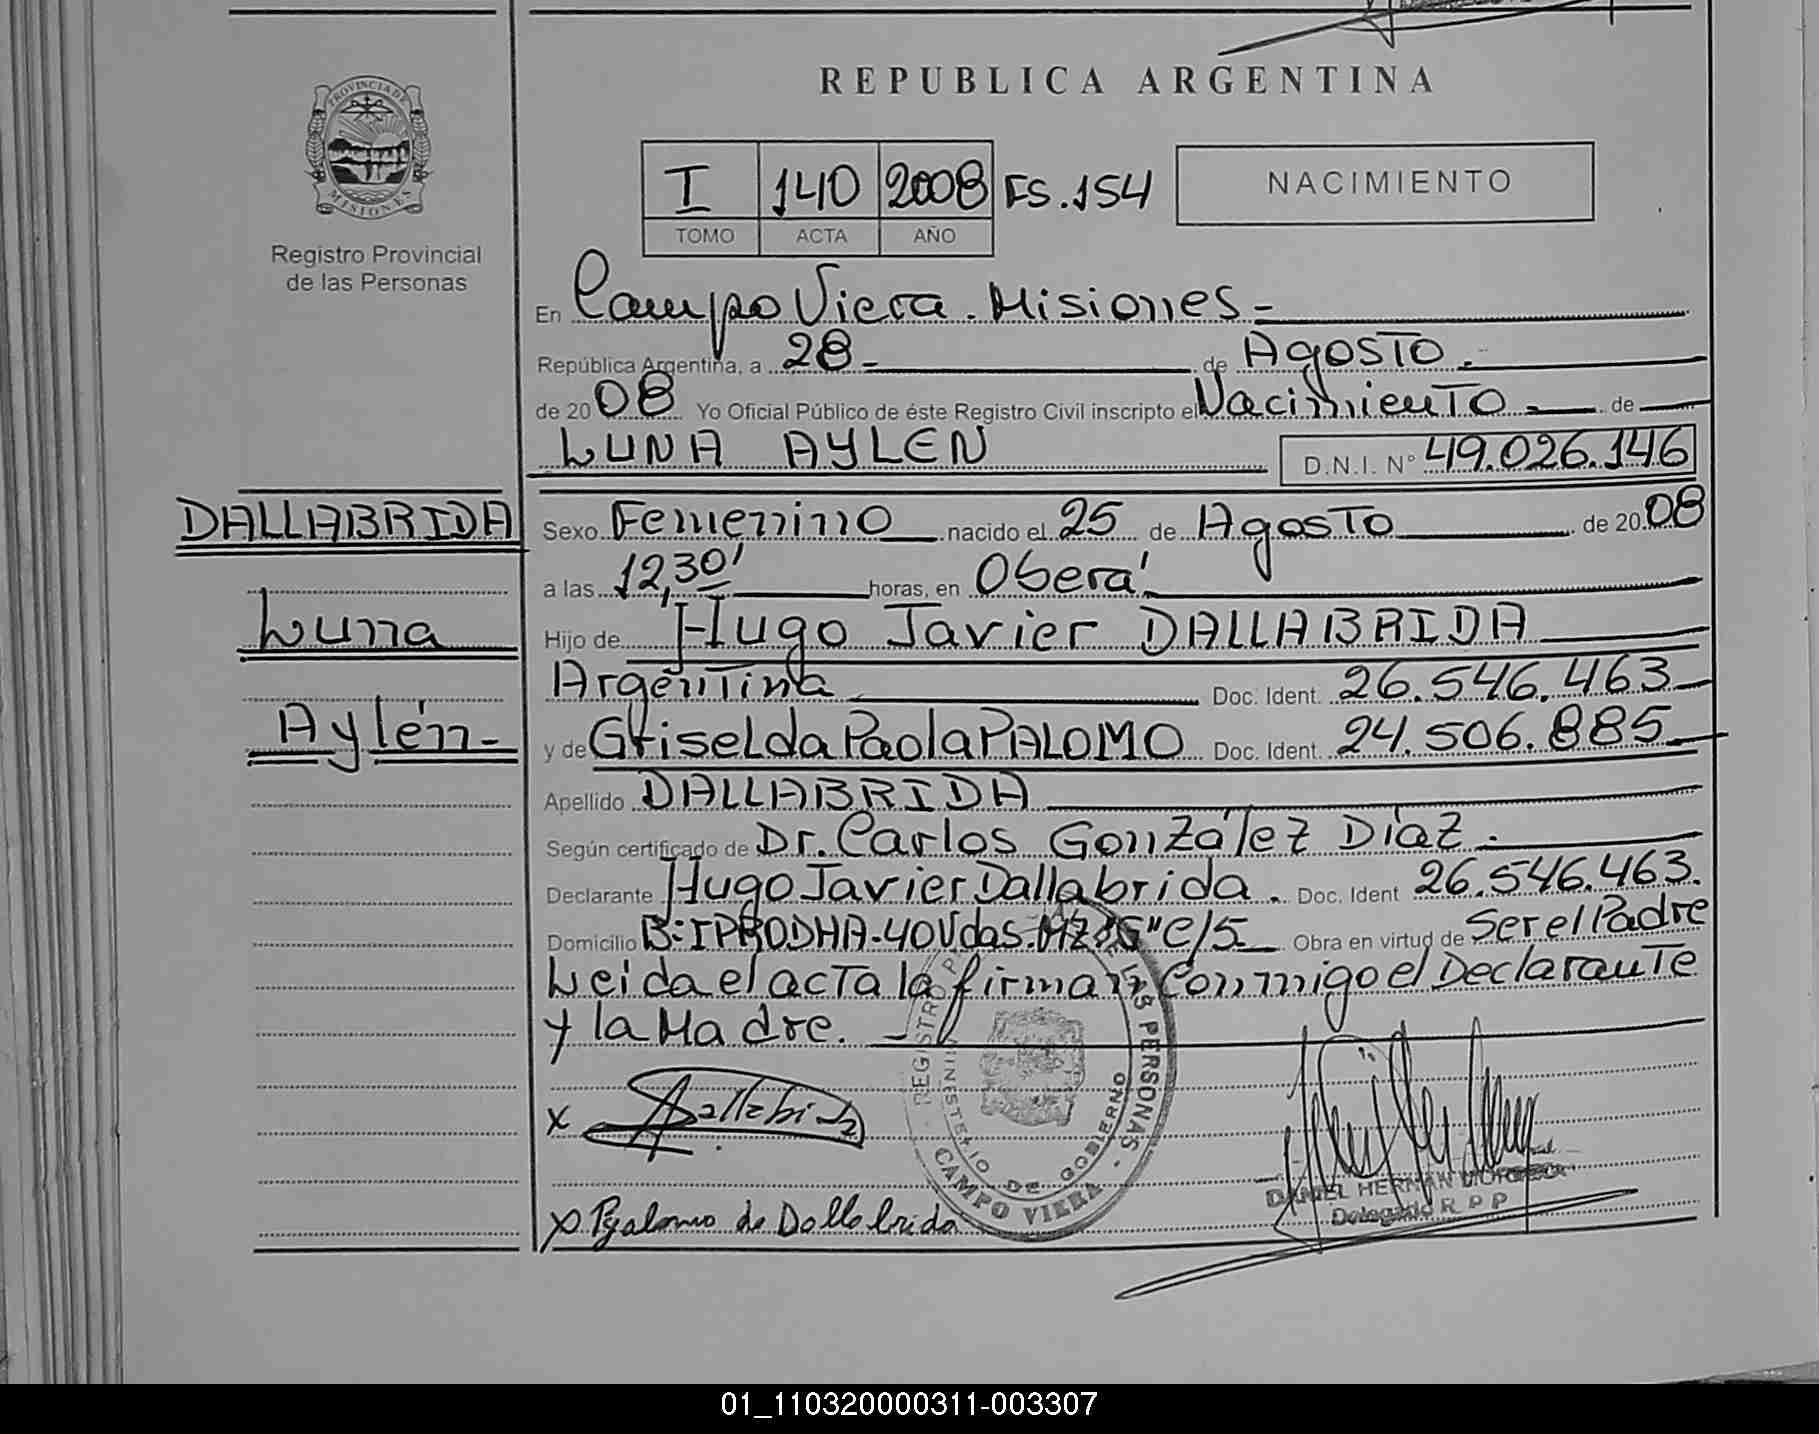 REPUBLICA ARGENTINA
PROVINCIA DE
MISIONES
Registro Provincial
de las Personas
I 140 2008 FS.154
TOMO ACTA AÑO
NACIMIENTO
En Campo Viera. Misiones -
República Argentina, a 28 - de Agosto.
de 2008 Yo Oficial Público de éste Registro Civil inscripto el Nacimiento - de
LUNA AYLEN D.N.I. N° 49.026.146
DALLABRIDA
Luna
Aylén -
Sexo Femenino nacido el 25 de Agosto de 2008
a las 12,30' horas, en Oberá
Hijo de Hugo Javier DALLABRIDA
Argentina Doc. Ident. 26.546.463
y de Griselda Paola PALOMO Doc. Ident. 24.506.885
Apellido DALLABRIDA
Según certificado de Dr. Carlos González Díaz.
Declarante Hugo Javier Dallabrida. Doc. Ident 26.546.463.
Domicilio B: IPRODHA - 40 Vdas. Mz "G" C/5 Obra en virtud de Ser el Padre
Leida el acta la firman Conmigo el Declarante
y la Madre. -
x Dallabrida
x Palomo de Dallabrida
REGISTRO LAS PERSONAS
MINISTERIO DE GOBIERNO
CAMPO VIERA
DANIEL HERNAN
Delegado R P P
01_110320000311-003307